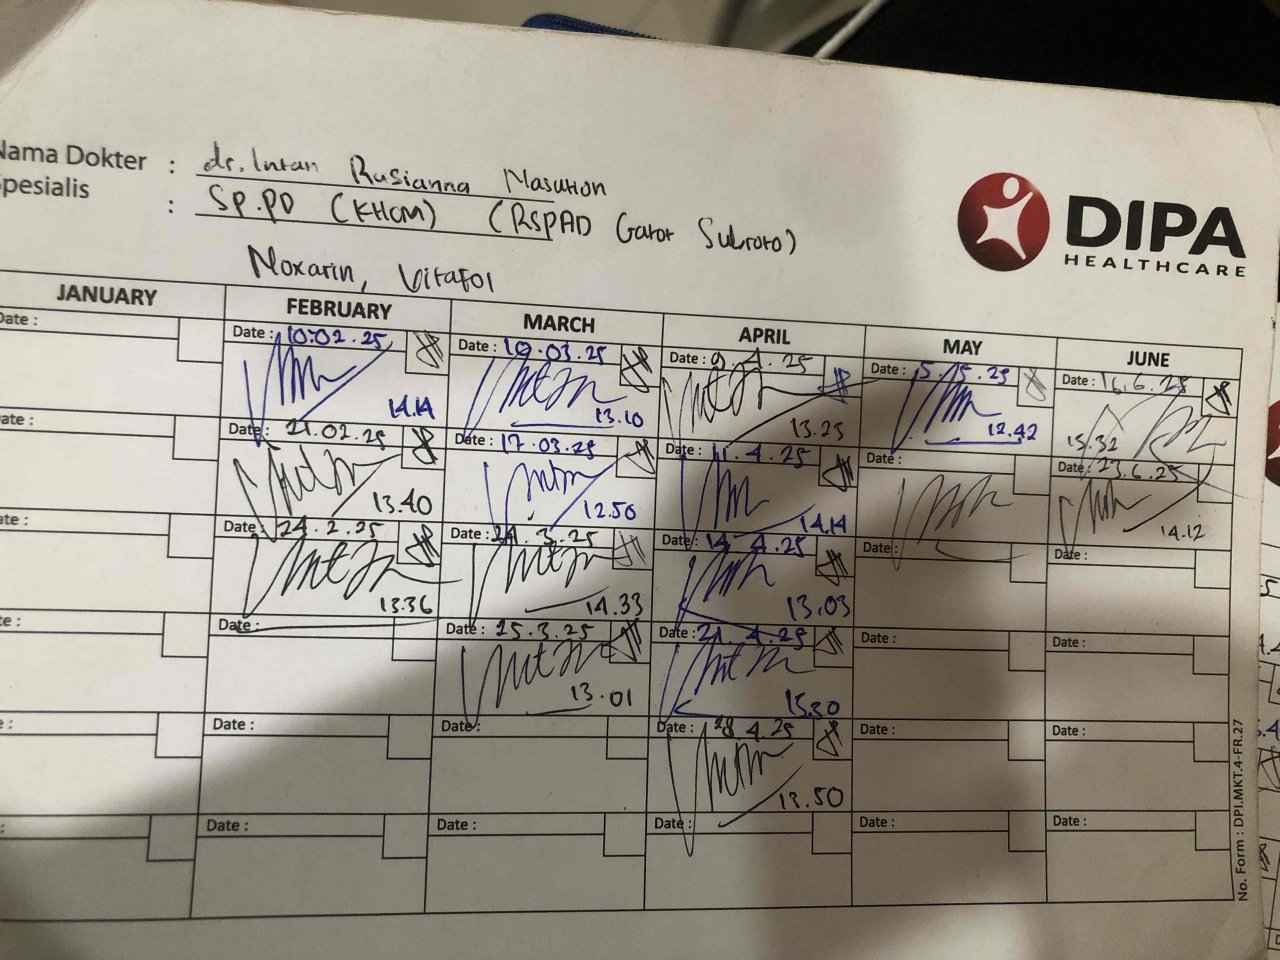 Nama Dokter : dr. Intan Rusianna Nasution
Spesialis : Sp.PD (KHOM) (RSPAD Gatot Subroto)
DIPA
HEALTHCARE
Noxarin, Vitafol
JANUARY FEBRUARY MARCH APRIL MAY JUNE
Date : Date : 10.02.25 Date : 10.03.25 Date : 9.4.25 Date : Date : 16.6.25
14.14 13.10 13.25 12.42 15.32
Date : Date : 21.02.25 Date : 17.03.25 Date : 11.4.25 Date : Date : 23.6.25
13.40 12.50 14.14 14.12
Date : Date : 24.2.25 Date : 24.3.25 Date : 14.4.25 Date : Date :
13.36 14.33 13.03
Date : Date : Date : 25.3.25 Date : 21.4.25 Date : Date :
13.01 15.30
Date : Date : Date : 28.4.25 Date : Date :
13.50
Date : Date : Date : Date : Date :
No. Form : DPI.MKT.4-FR.27